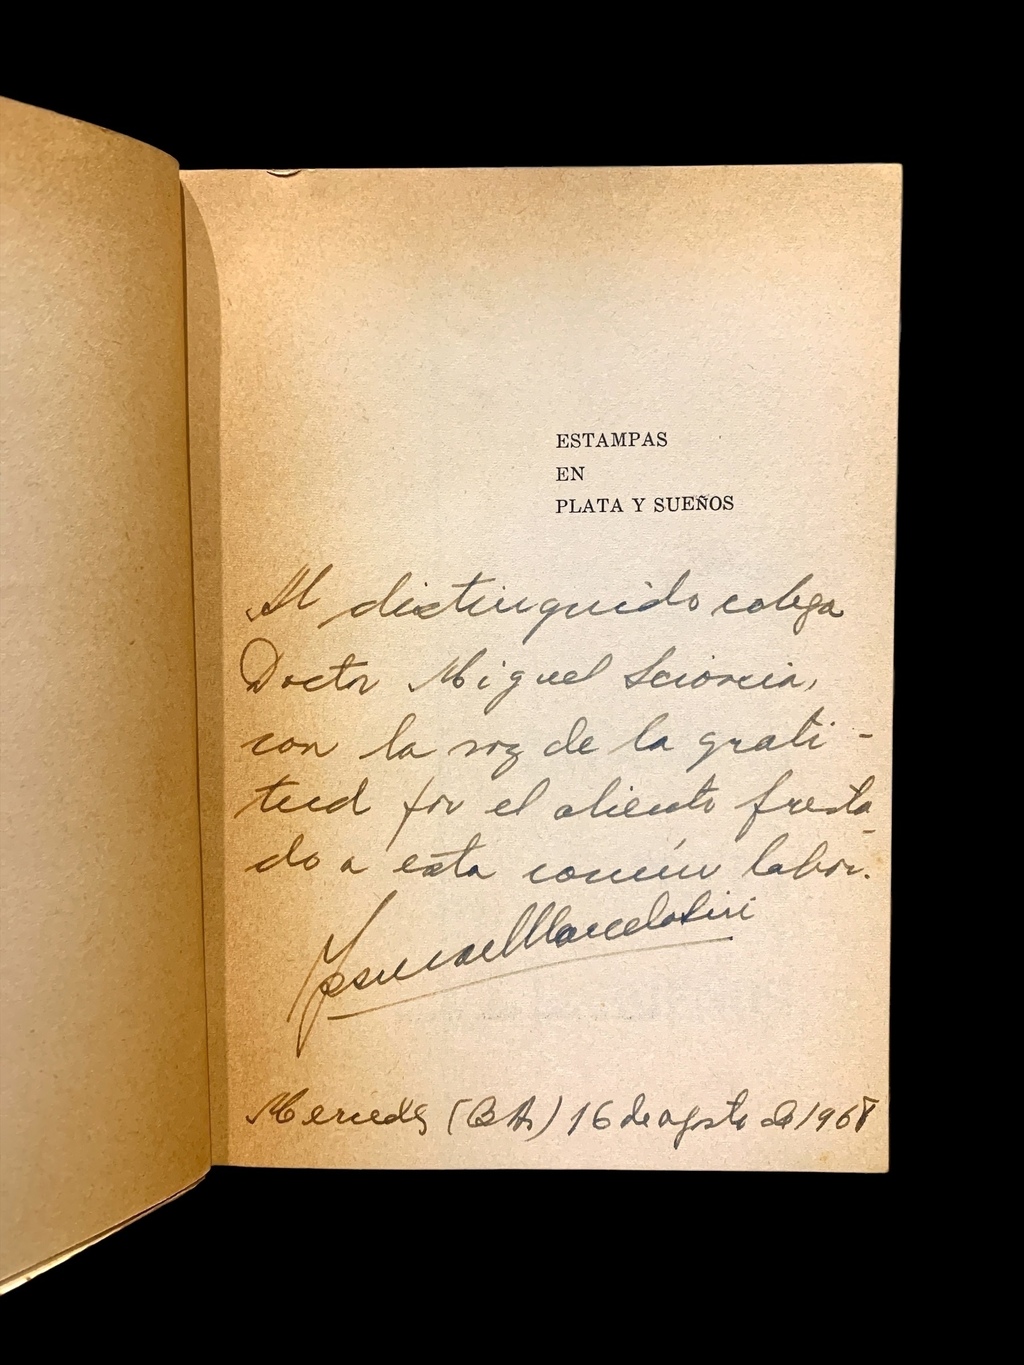 ESTAMPAS
EN
PLATA Y SUEÑOS
Al distinguido colega
Doctor Miguel Sciorcia,
con la voz de la grati-
tud por el aliento presta-
do a esta común labor.
Mercedes (BA) 16 de agosto de 1968